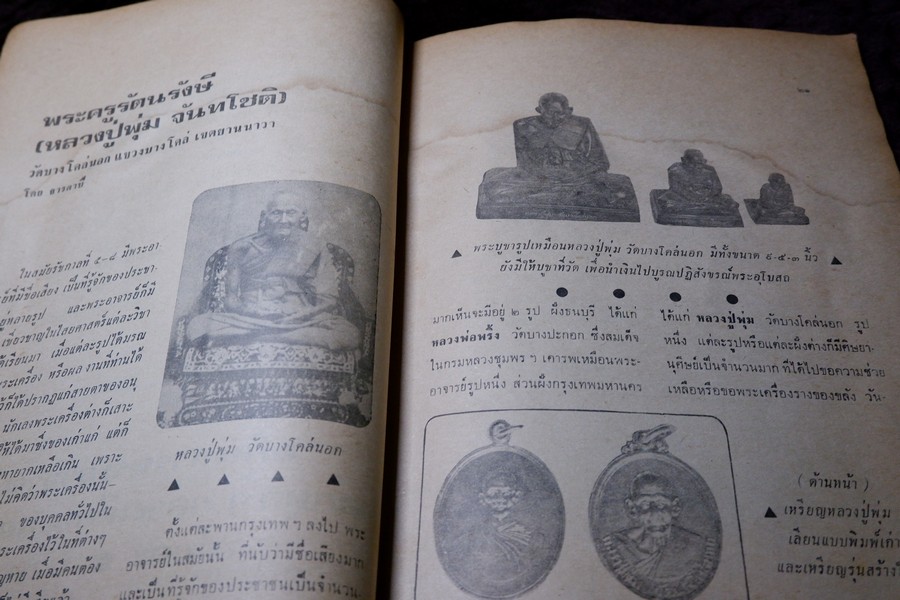 พระครูรัตนรังษี
(หลวงปู่พุ่ม จันทโชติ)
วัดบางโคล่นอก แขวงบางโคล่ เขตยานนาวา
โดย
ในสมัยรัชกาลที่ ๕-๘ มีพระอา-
ย์ที่มีชื่อเสียง เป็นที่รู้จักของประชา-
ยู่หลายรูป และพระอาจารย์ก็มี
เชี่ยวชาญในไสยศาสตร์แต่ละวิชา
ได้เรียนมา เมื่อแต่ละรูปได้มรณ
ระเครื่อง หรือผลงานที่ท่านได้
ว้ก็ได้ปรากฏแก่สายตาของอนุ
นักเลงพระเครื่องต่างก็เสาะ
ให้ได้มาซึ่งของเก่าแก่ แต่ก็
หายากเหลือเกิน เพราะ
ไม่คิดว่าพระเครื่องนั้น-
ของบุคคลทั่วไปใน
ระเครื่องไว้ในที่ต่างๆ
ญหาย เมื่อมีคนต้อง
หลวงปู่พุ่ม วัดบางโคล่นอก
ตั้งแต่สะพานกรุงเทพฯ ลงไป พระ
อาจารย์ในสมัยนั้น ที่นับว่ามีชื่อเสียงมาก
และเป็นที่รู้จักของประชาชนเป็นจำนวน
๒๑
พระบูชารูปเหมือนหลวงปู่พุ่ม วัดบางโคล่นอก มีทั้งขนาด ๙-๕-๓ นิ้ว
ยังมีให้บูชาที่วัด เพื่อนำเงินไปบูรณปฏิสังขรณ์พระอุโบสถ
มากเห็นจะมีอยู่ ๒ รูป ฝั่งธนบุรี ได้แก่
หลวงพ่อพริ้ง วัดบางปะกอก ซึ่งสมเด็จ
ในกรมหลวงชุมพร ฯ เคารพเหมือนพระ-
อาจารย์รูปหนึ่ง ส่วนฝั่งกรุงเทพมหานคร
ได้แก่ หลวงปู่พุ่ม วัดบางโคล่นอก รูป
หนึ่ง แต่ละรูปหรือแต่ละฝั่งต่างก็มีศิษยา-
นุศิษย์เป็นจำนวนมาก ที่ได้ไปขอความช่วย
เหลือหรือขอพระเครื่องรางของขลัง วัน-
(ด้านหน้า)
เหรียญหลวงปู่พุ่ม
เลียนแบบพิมพ์เก่า
และเหรียญรุ่นสร้าง